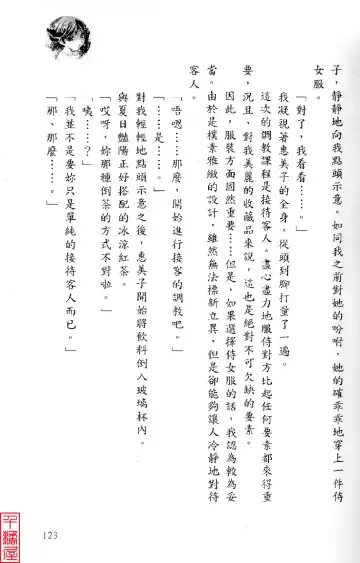 子，靜靜地向我點頭示意。如同我之前對她的吩咐，她的確乖乖地穿上一件侍
女服。
「對了，我看看……。」
我凝視著惠美子的全身。從頭到腳打量了一遍。
這次的調教課程是接待客人。盡心盡力地服侍對方比起任何要素都來得重
要，況且，對我美麗的收藏品來說，這也是絕對不可欠缺的要素。
因此，服裝方面固然重要……但是，如果選擇侍女服的話，我認為較為妥
當。由於是樸素雅緻的設計，雖然無法標新立異，但是卻能夠讓人冷靜地對待
客人。
「唔嗯……那麼，開始進行接客的調教吧。」
「……是……。」
對我輕輕地點頭示意之後，惠美子開始將飲料倒入玻璃杯內。
與夏日豔陽正好搭配的冰涼紅茶。
「哎呀，妳那種倒茶的方式不對啦。」
「咦……？」
「我並不是要妳只是單純的接待客人而已。」
「那、那麼……。」
123
千鷸屋